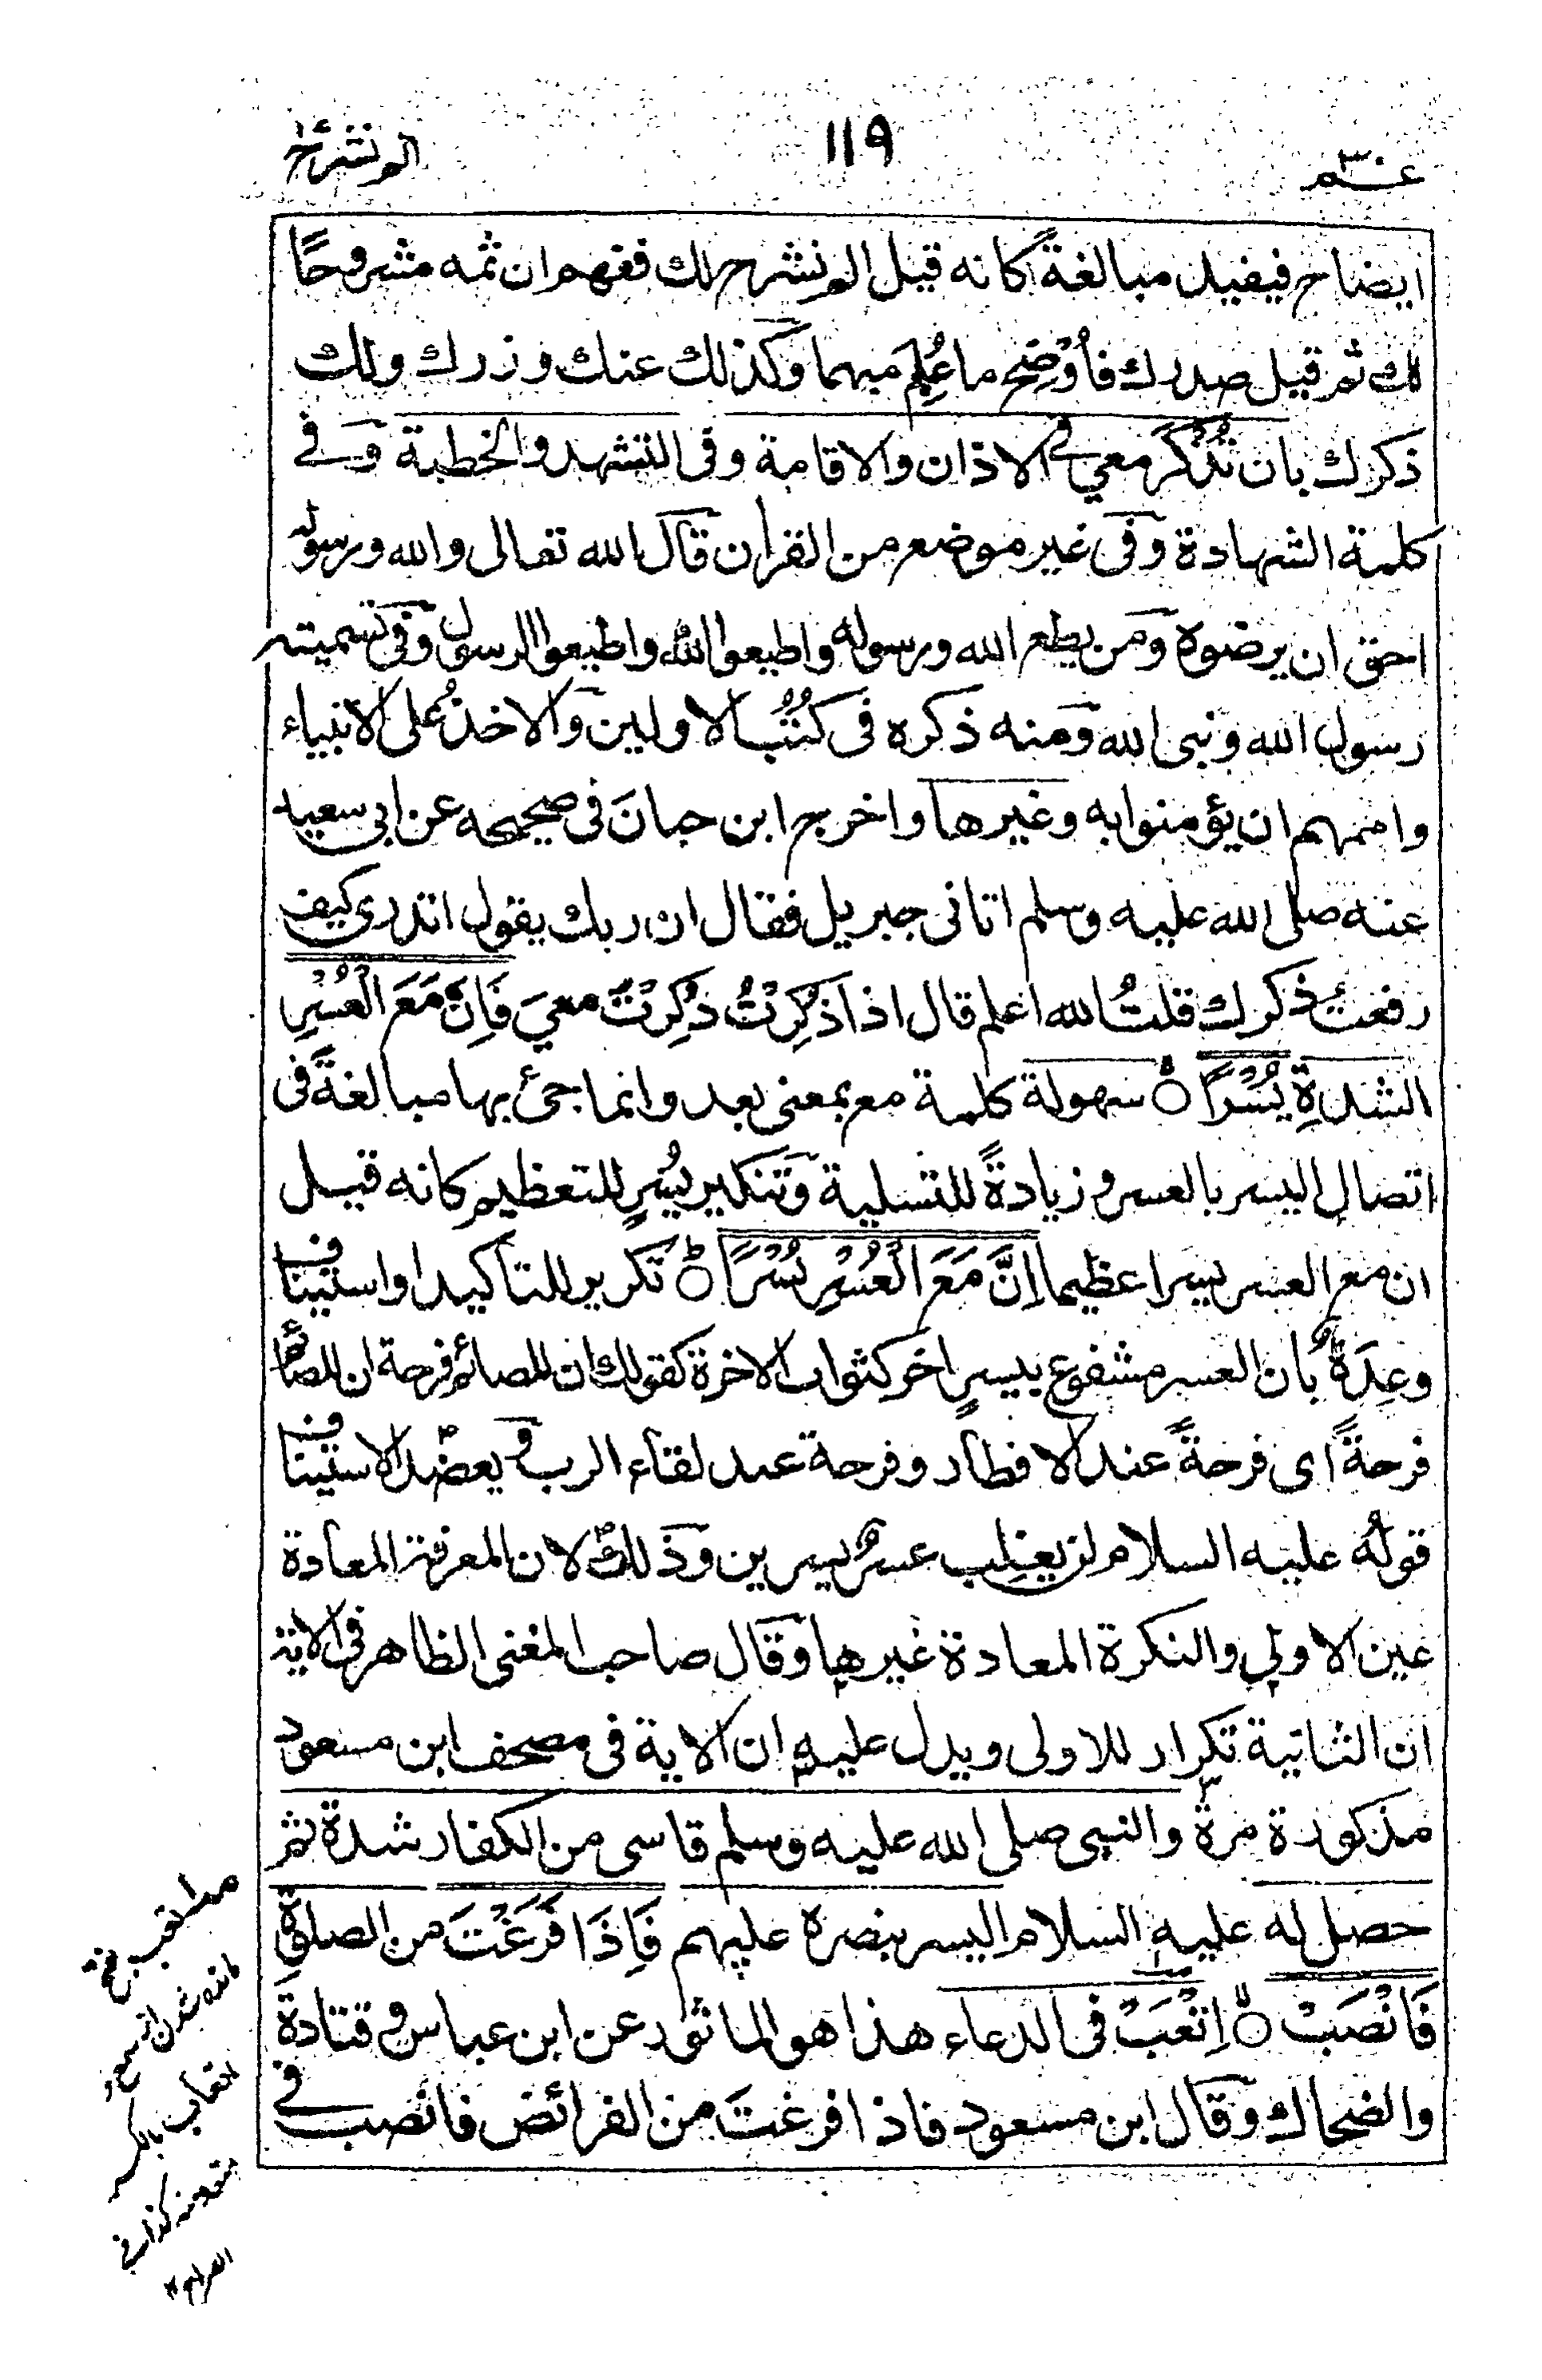 عــم ٣٠
١١٩
الم نشرح
ايضاح فيفيد مبالغةً كانه قيل الم نشرح لك ففهم ان ثمه مشروحًا
لك ثم قيل صدرك فأُوْضِح ما عُلِم مبهما وكذلك عنك وزرك ولك
ذكرك بان تُذْكَر معي في الاذان والاقامة وفى التشهد والخطبة وفے
كلمة الشهادة وفى غير موضع من القرأن قال الله تعالى والله ورسوله
احق ان يرضوه ومن يطع الله ورسوله واطيعوا الله واطيعوا الرسول وفى تسميته
رسول الله ونبى الله ومنه ذكره فى كُتُب الاولين والاخذُ على الانبياء
واممهم ان يؤمنوا به وغيرها واخرج ابن حبانَ فى صحيحه عن ابى سعيد
عنه صلى الله عليه وسلم اتانى جبريل فقال ان ربك يقول اتدرى كيف
رفعت ذكرك قلتُ الله اعلم قال اذا ذُكِرْتُ ذُكِرْتَ معيَ فَاِنَّ مَعَ الْعُسْرِ
الشدةِ يُسْرًا سهولة كلمة مع بمعنى بعد وانما جئ بها مبالغةً فى
اتصال اليسر بالعسر و زيادةً للتسلية وتنكير يُسْرٍ للتعظيم كانه قيل
ان مع العسر يسرا عظيما اِنَّ مَعَ الْعُسْرِ يُسْرًا ط تكرير للتأكيد او استيناف
وعِدَةٌ بان العسر مشفوع بيسرٍ اخر كثواب الاخرة كقولك ان للصائم فرحة ان للصائم
فرحةً اى فرحةً عند الافطار وفرحة عند لقاء الرب ويعضد الاستيناف
قولُه عليه السلام لن يغلِب عسرٌ يسرين وذلك لان المعرفة المعادة
عين الاولي والنكرة المعادة غيرها وقال صاحب المغنى الظاهر فى الاية
ان الثانية تكرار للاولى ويدل عليه ان الاية فى مصحف ابن مسعود
مذكورة مرة والنبي صلى الله عليه وسلم قاسى من الكفار شدة ثم
حصل له عليه السلام اليسر بنصره عليهم فَاِذَا فَرَغْتَ من الصلوةِ
فَانْصَبْ اِتْعَبْ فى الدعاء هذا هو الماثور عن ابن عباس و قتادة
والضحاك وقال ابن مسعود فاذا فرغتَ من الفرائض فانصب فے